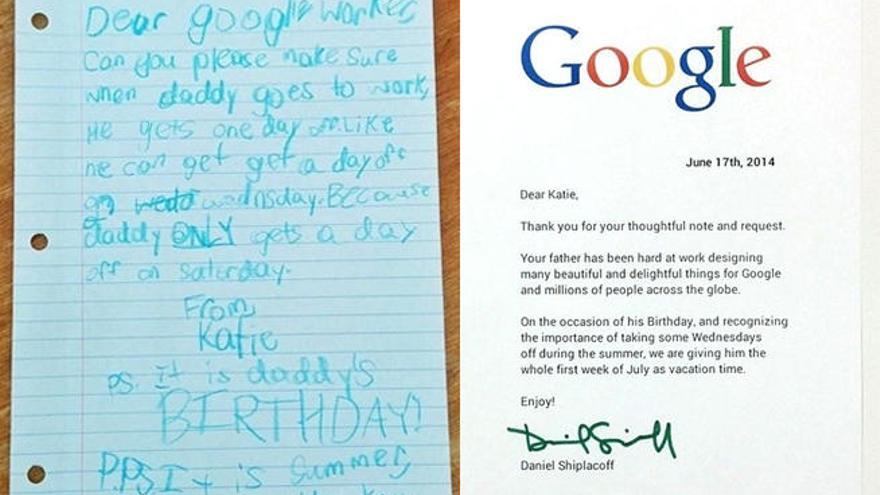 Dear google worker,
Can you please make sure
when daddy goes to work,
He gets one day off. Like
he can get get a day off
on wednsday. Because
daddy ONLY gets a day
off on saturday.
From,
Katie
P.S. It is daddy's
BIRTHDAY!
P.P.S. It is summer,
Google
June 17th, 2014
Dear Katie,
Thank you for your thoughtful note and request.
Your father has been hard at work designing
many beautiful and delightful things for Google
and millions of people across the globe.
On the occasion of his Birthday, and recognizing
the importance of taking some Wednesdays
off during the summer, we are giving him the
whole first week of July as vacation time.
Enjoy!
Daniel Shiplacoff